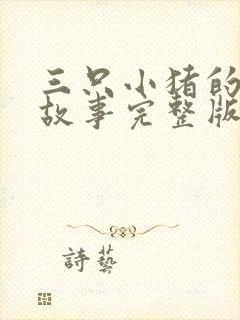 三只小猪的
故事完整版
詩藝